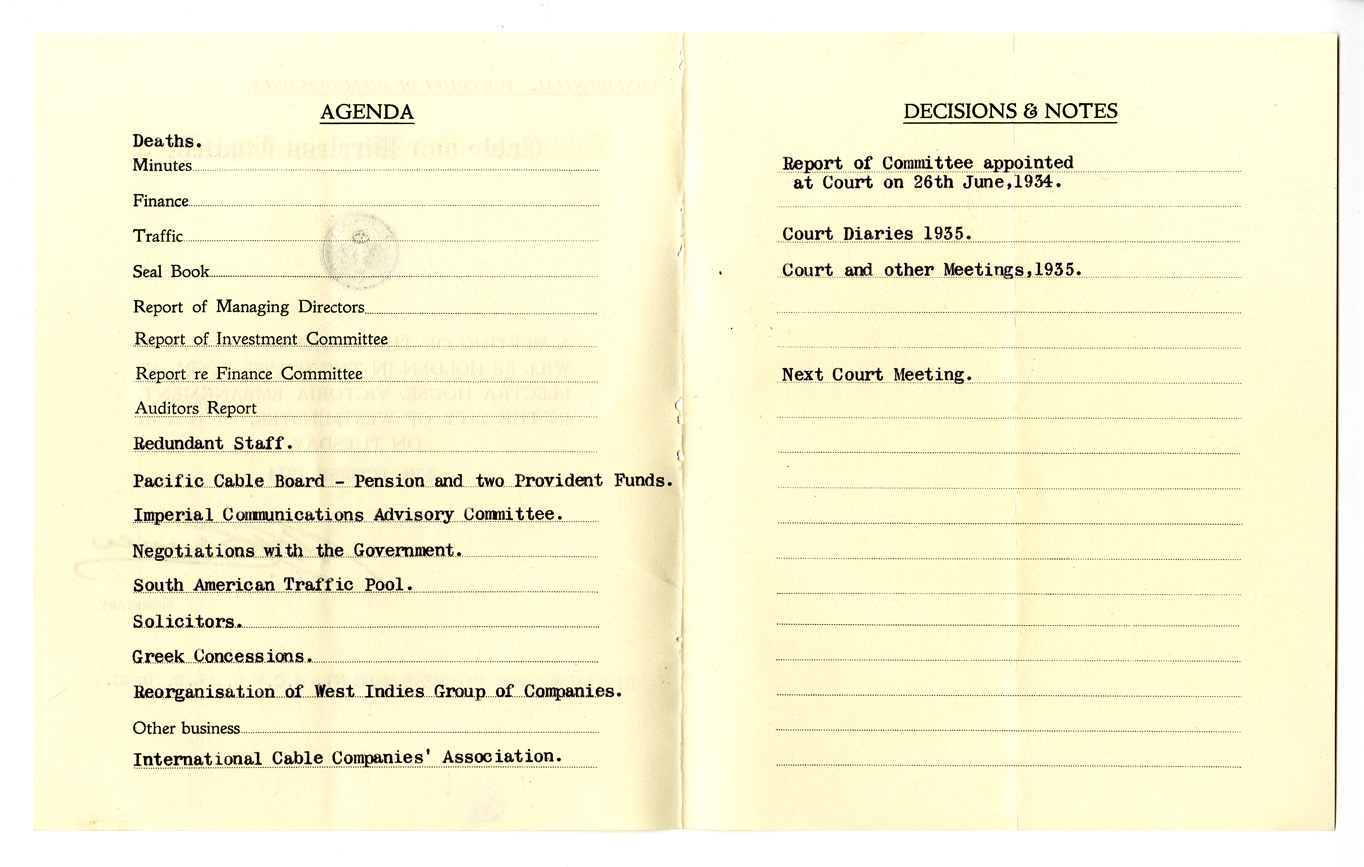 AGENDA
Deaths.
Minutes
Finance
Traffic
Seal Book
Report of Managing Directors
Report of Investment Committee
Report re Finance Committee
Auditors Report
Redundant Staff.
Pacific Cable Board - Pension and two Provident Funds.
Imperial Communications Advisory Committee.
Negotiations with the Government.
South American Traffic Pool.
Solicitors.
Greek Concessions.
Reorganisation of West Indies Group of Companies.
Other business
International Cable Companies' Association.
DECISIONS & NOTES
Report of Committee appointed
at Court on 26th June,1934.
Court Diaries 1935.
Court and other Meetings,1935.
Next Court Meeting.